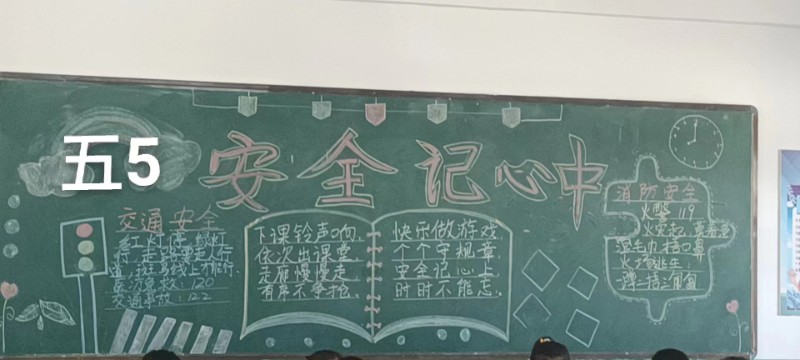 五5
安全记心中
交通安全
红灯停 绿灯
行,走路要走人行
道,斑马线上才能行.
医疗急救:120
交通事故:122
下课铃声响,
依次出课堂.
走廊慢慢走
有序不争抢.
快乐做游戏
个个守规章.
安全记心上
时时不能忘.
消防安全
火警 119
火灾起,
湿毛巾捂口鼻
火场逃生